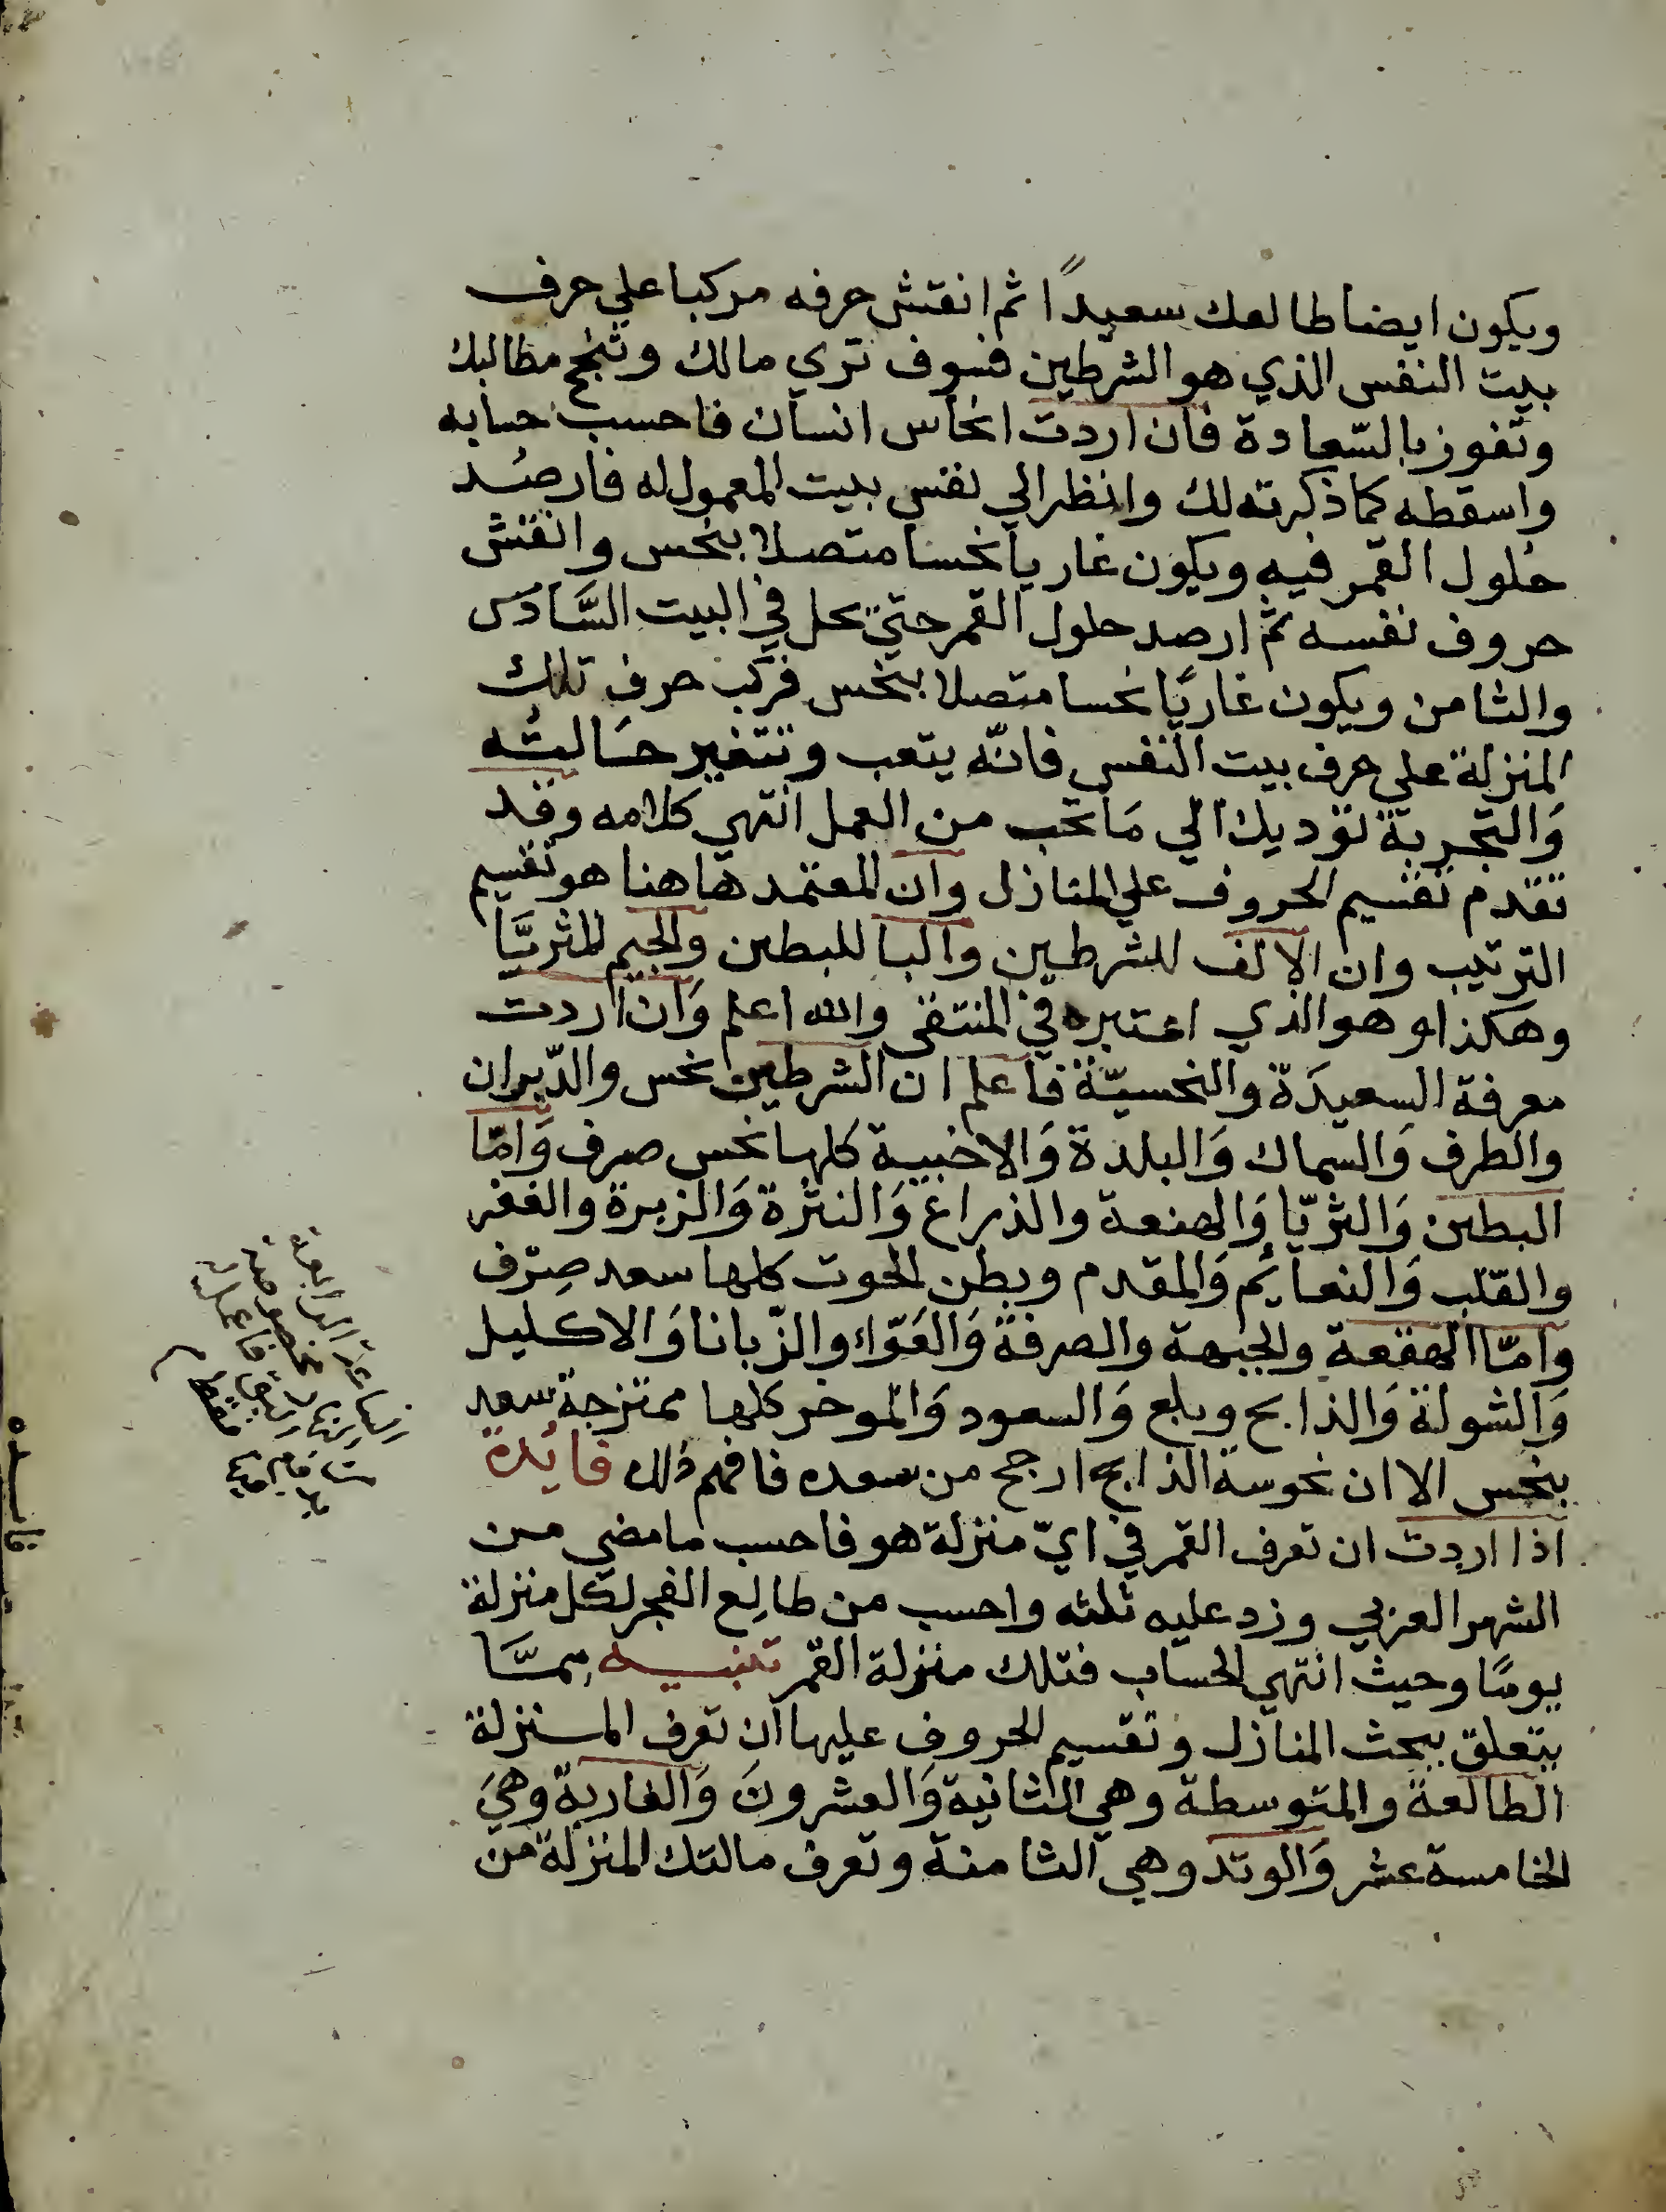 ويكون ايضا طالعك سعيدًا ثم انقش حرفه مركبا علي حرف
بيت النفس الذي هو الشرطين فسوف تري مالك وتنجح مطالبك
وتفوز بالسّعادة فان اردت انحاس انسان فاحسب حسابه
واسقطه كما ذكرته لك وانظر الي نفس بيت المعمول له فارصد
حلول القمر فيه ويكون غاربا نحسا متصلا بنحس وانقش
حروف نفسه ثم ارصد حلول القمر حتي يحل في البيت السَّادس
والثامن ويكون غاربًا نحسا متصلا بنحس فركب حرف تلك
المنزلة علي حرف بيت النفس فانّه يتعب وتتغير حَالتُه
وَالتجربة تؤديك الي مَا تحب من العمل انتهي كلامه وقد
تقدم تقسيم الحروف علي المنازل وان المعتمد هاهنا هو تقسيم
الترتيب وان الالف للشرطين والبا للبطين والجيم للثريَّا
وهكذا وهو الذي اعتبره في المنتقى والله اعلم وَان اردت
معرفة السعيدَة والنحسيّة فاعلم ان الشرطين نحس والدّبران
والطرف وَالسماك وَالبلدة وَالاخبية كلها نحس صرف وَامّا
البطين وَالثريّا وَالهنعة والذراع وَالنثرة وَالزبرة والغفر
والقلب وَالنعايم وَالمقدم وبطن الحوت كلها سعد صِرف
وامّا الهقعة والجبهة والصرفة وَالعَوّاء والزّبانا وَالاكليل
وَالشولة وَالذابح وبلع وَالسعود وَالموخر كلها ممتزجة سعد
بنحس الا ان نحوسة الذابح ارجح من سعده فافهم ذلك فايدة
اذا اردت ان تعرف القمر في ايّ منزلة هو فاحسب ما مضي من
الشهر العربي وزد عليه ثلثه واحسب من طالِع الفجر لكل منزلة
يومًا وحيث انتهي الحساب فتلك منزلة القمر تنبيه مِمَّا
يتعلق ببحث المنازل وتقسيم الحروف عليها ان تعرف المنزلة
الطالعة والمتوسطة وهي الثانية وَالعشرونَ وَالغاربة وهيَ
الخامسة عشر وَالوتد وهي الثامنة وتعرف مالتك المنزلة من